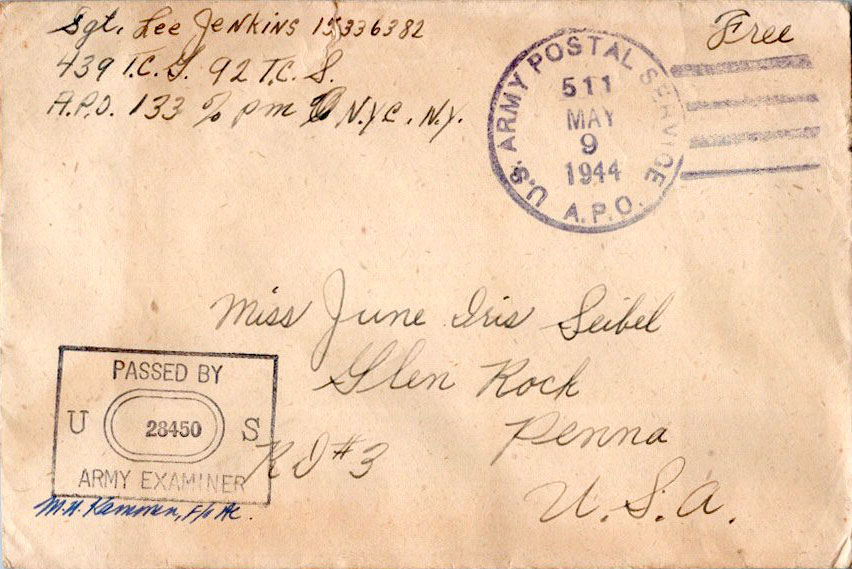 Sgt. Lee Jenkins 15336382
439 T.C.G. 92 T.C.S.
A.P.O. 133 % pm NYC. N.Y.
Free
U.S. ARMY POSTAL SERVICE
511
MAY
9
1944
A.P.O.
Miss June Iris Seibel
Glen Rock
RD #3 Penna
U.S.A.
PASSED BY
U 28450 S
ARMY EXAMINER